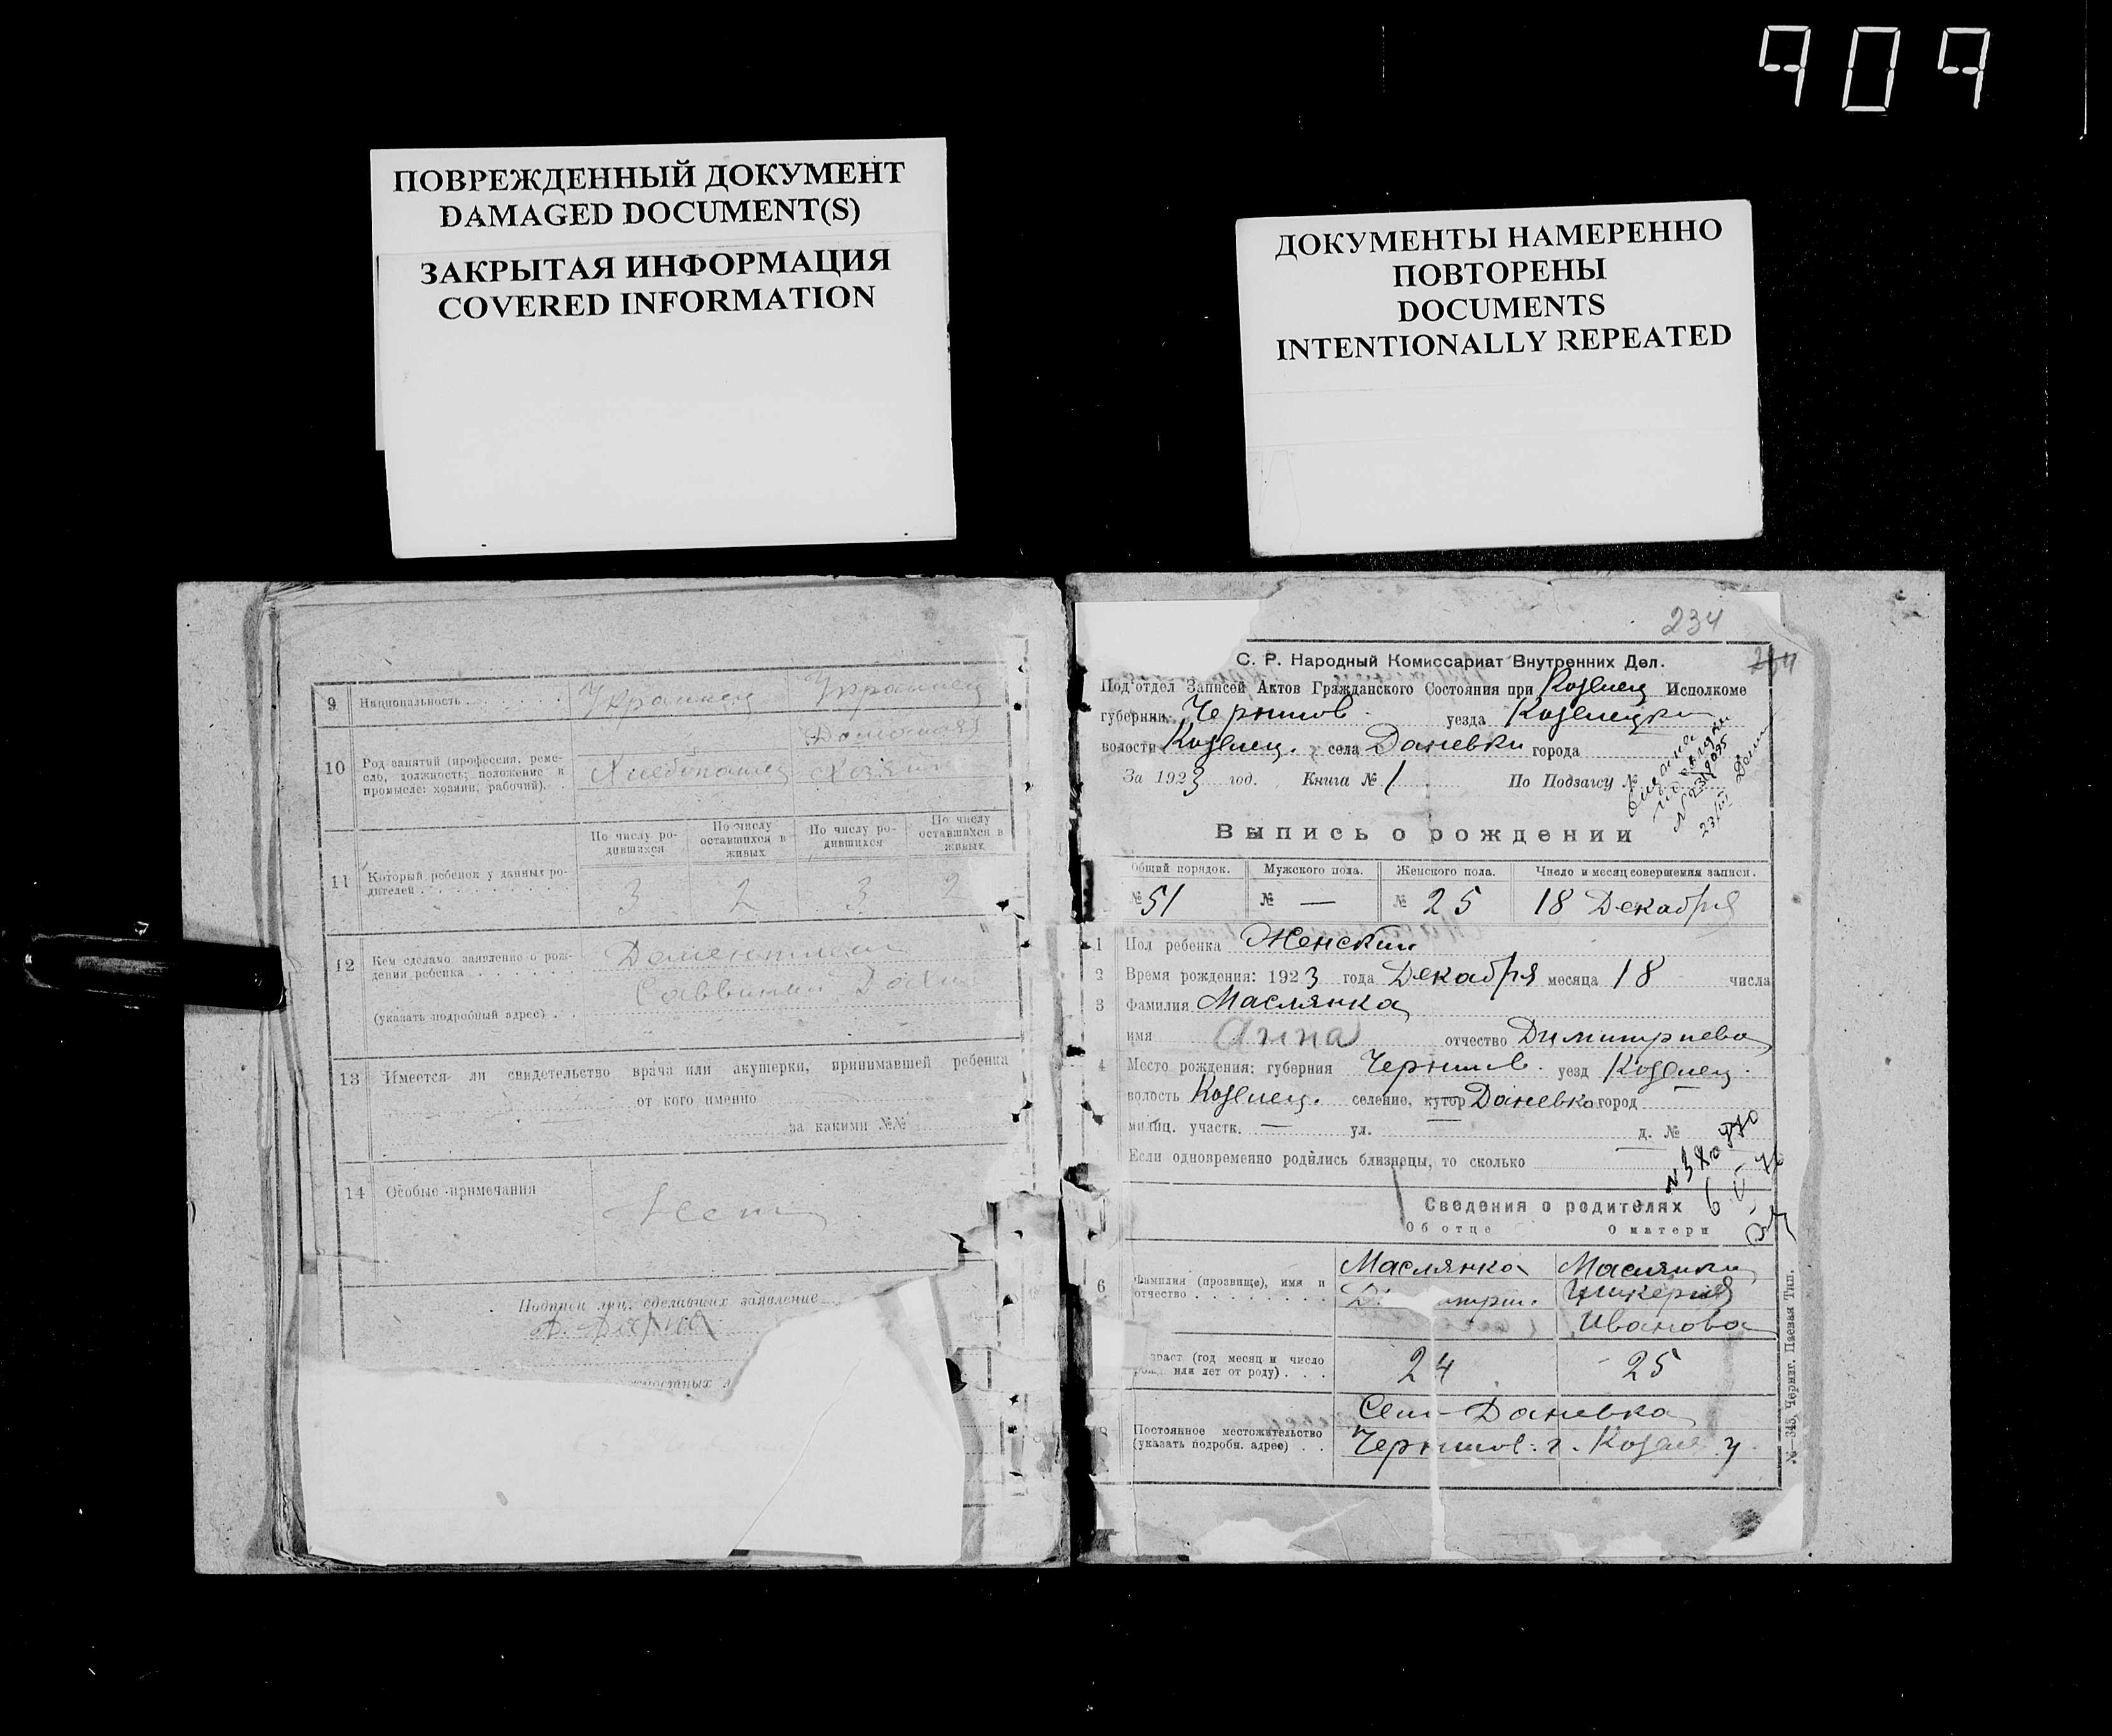 909
ПОВРЕЖДЕННЫЙ ДОКУМЕНТ
DAMAGED DOCUMENT(S)
ЗАКРЫТАЯ ИНФОРМАЦИЯ
COVERED INFORMATION
ДОКУМЕНТЫ НАМЕРЕННО
ПОВТОРЕНЫ
DOCUMENTS
INTENTIONALLY REPEATED
9 Национальность Украинец Украинец
Домашняя
10 Род занятий (профессия, реме-
сло, должность; положение в
промысле: хозяин, рабочий).
Хлебопашец Хозяйка
По числу ро-
дившихся
По числу
оставшихся в
живых
По числу ро-
дившихся
По числу
оставшихся в
живых
11 Который ребенок у данных ро-
дителей
3 2 3 2
12 Кем сделано заявление о рож-
дении ребенка
(указать подробный адрес)
13 Имеется ли свидетельство врача или акушерки, принимавшей ребенка
от кого именно
за какими №№
14 Особые примечания
Нет
Подписи лиц, сделавших заявление
234
С. Р. Народный Комиссариат Внутренних Дел.
Под'отдел Записей Актов Гражданского Состояния при Козелец Исполкоме
губернии Чернигов. уезда Козелецки
волости Козелец. села Даневки города
За 1923 год. Книга № 1 По Подзагсу №
Выпись о рождении
Общий порядок. Мужского пола. Женского пола. Число и месяц совершения записи.
№ 51 № — № 25 18 Декабря
1 Пол ребенка Женский
2 Время рождения: 1923 года Декабря месяца 18 числа
3 Фамилия Маслянка
имя Анна отчество Димитриева
4 Место рождения: губерния Чернигов. уезд Козелец.
волость Козелец. селение, хутор Даневка город
милиц. участк. — ул. д. №
Если одновременно родились близнецы, то сколько
Сведения о родителях
Об отце О матери
6 Фамилия (прозвище), имя и
отчество
Маслянка Маслянка
Иванова
возраст (год месяц и число
рожд. или лет от роду)
24 25
Постоянное местожительство
(указать подробн. адрес)
Село Даневка
Чернигов. г. Козелец. у.
№ 343, Черниг. Паевая Тип.